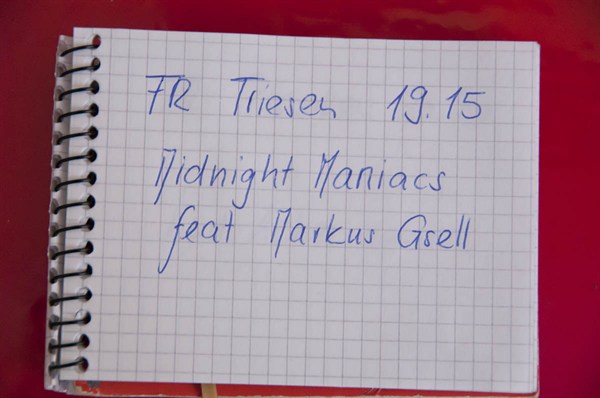 FR Triesen 19.15
Midnight Maniacs
feat Markus Gsell